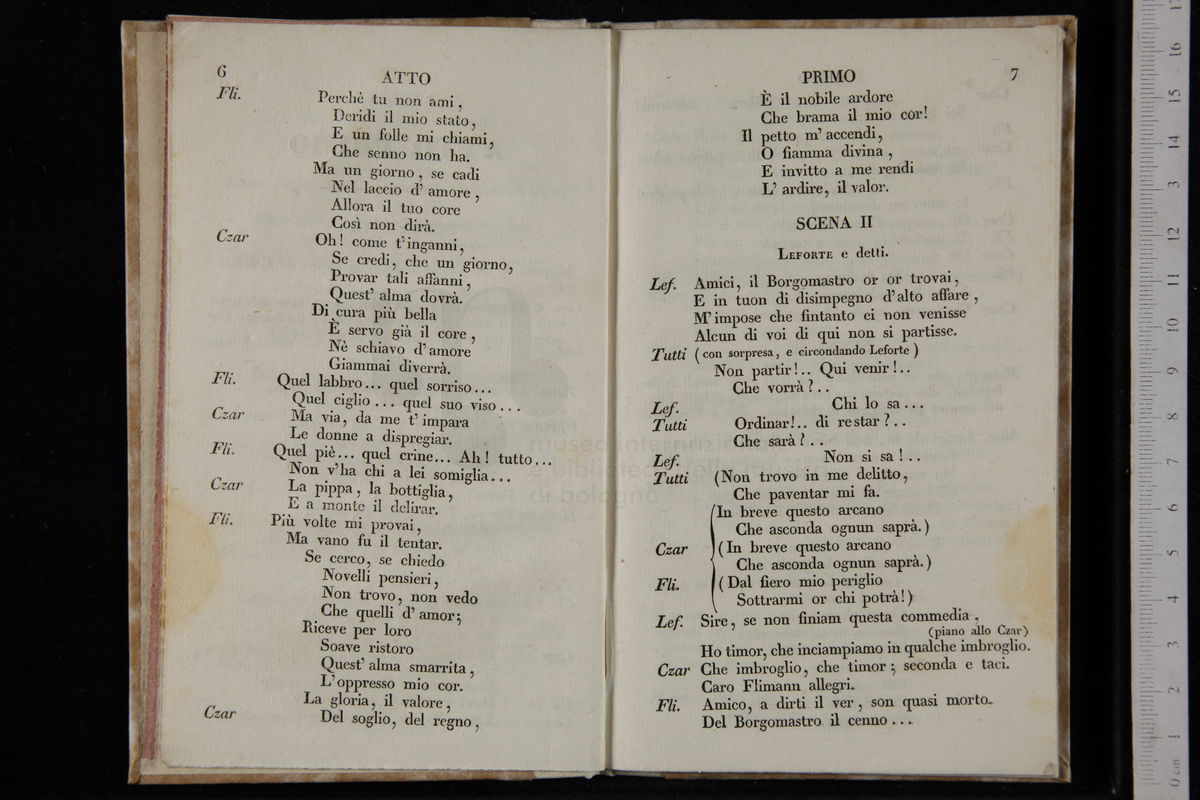 6
ATTO
Fli. Perchè tu non ami,
Deridi il mio stato,
E un folle mi chiami,
Che senno non ha.
Ma un giorno, se cadi
Nel laccio d' amore,
Allora il tuo core
Così non dirà.
Czar Oh! come t'inganni,
Se credi, che un giorno,
Provar tali affanni,
Quest' alma dovrà.
Di cura più bella
È servo già il core,
Nè schiavo d'amore
Giammai diverrà.
Fli. Quel labbro... quel sorriso...
Quel ciglio... quel suo viso...
Czar Ma via, da me t'impara
Le donne a dispregiar.
Fli. Quel piè... quel crine... Ah! tutto...
Non v'ha chi a lei somiglia...
Czar La pippa, la bottiglia,
E a monte il delirar.
Fli. Più volte mi provai,
Ma vano fu il tentar.
Se cerco, se chiedo
Novelli pensieri,
Non trovo, non vedo
Che quelli d' amor;
Riceve per loro
Soave ristoro
Quest' alma smarrita,
L'oppresso mio cor.
La gloria, il valore,
Czar Del soglio, del regno,
PRIMO
7
È il nobile ardore
Che brama il mio cor!
Il petto m' accendi,
O fiamma divina,
E invitto a me rendi
L' ardire, il valor.
SCENA II
LEFORTE e detti.
Lef. Amici, il Borgomastro or or trovai,
E in tuon di disimpegno d'alto affare,
M'impose che fintanto ei non venisse
Alcun di voi di qui non si partisse.
Tutti (con sorpresa, e circondando Leforte)
Non partir!.. Qui venir!..
Che vorrà?..
Lef. Chi lo sa...
Tutti Ordinar!.. di restar?..
Che sarà?..
Lef. Non si sa!..
Tutti (Non trovo in me delitto,
Che paventar mi fa.
(In breve questo arcano
Che asconda ognun saprà.)
Czar (In breve questo arcano
Che asconda ognun saprà.)
Fli. (Dal fiero mio periglio
Sottrarmi or chi potrà!)
Lef. Sire, se non finiam questa commedia,
(piano allo Czar)
Ho timor, che inciampiamo in qualche imbroglio.
Czar Che imbroglio, che timor; seconda e taci.
Caro Flimann allegri.
Fli. Amico, a dirti il ver, son quasi morto.
Del Borgomastro il cenno...
museo internazionale
e biblioteca della musica
di bologna
0 cm. 1 2 3 4 5 6 7 8 9 10 11 12 13 14 15 16 17